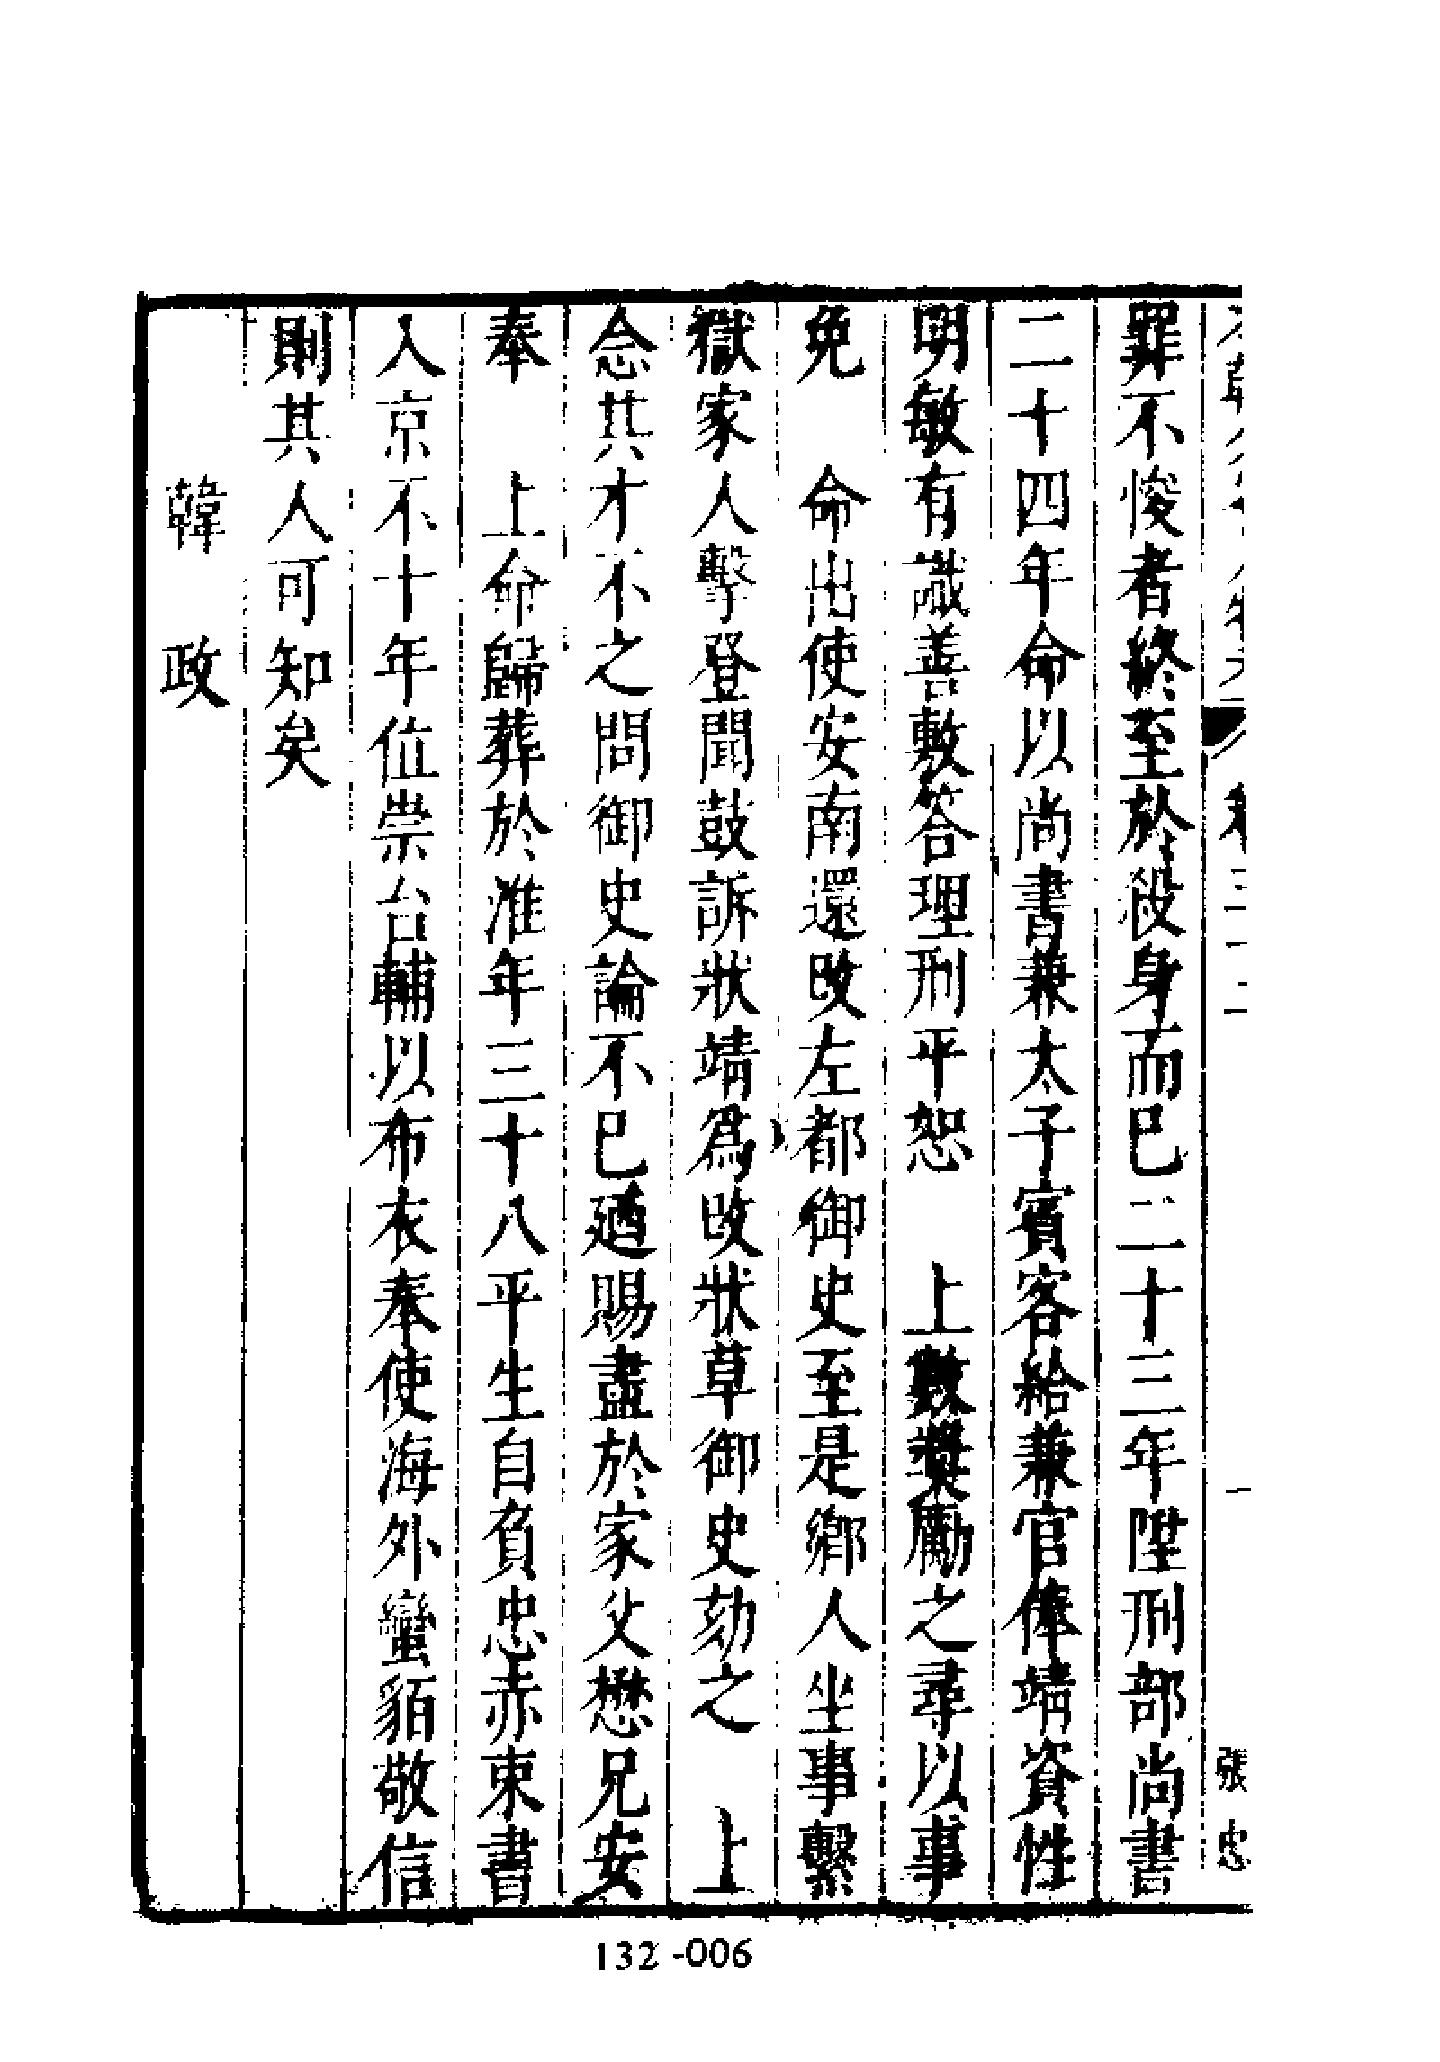 罪不悛者終至於殺身而已二十三年陞刑部尚書
二十四年命以尚書兼太子賓客給兼官俸靖資性
明敏有識善敷答理刑平恕　上數獎勵之尋以事
免　命出使安南還改左都御史至是鄉人坐事繫
獄家人擊登聞鼓訴狀靖爲改狀草御史劾之　上
念其才不之問御史論不已廼賜盡於家父懋兄安
奉　上命歸葬於淮年三十八平生自負忠赤束書
入京不十年位崇台輔以布衣奉使海外蠻貊敬信
則其人可知矣
韓　政
張忠
132-006